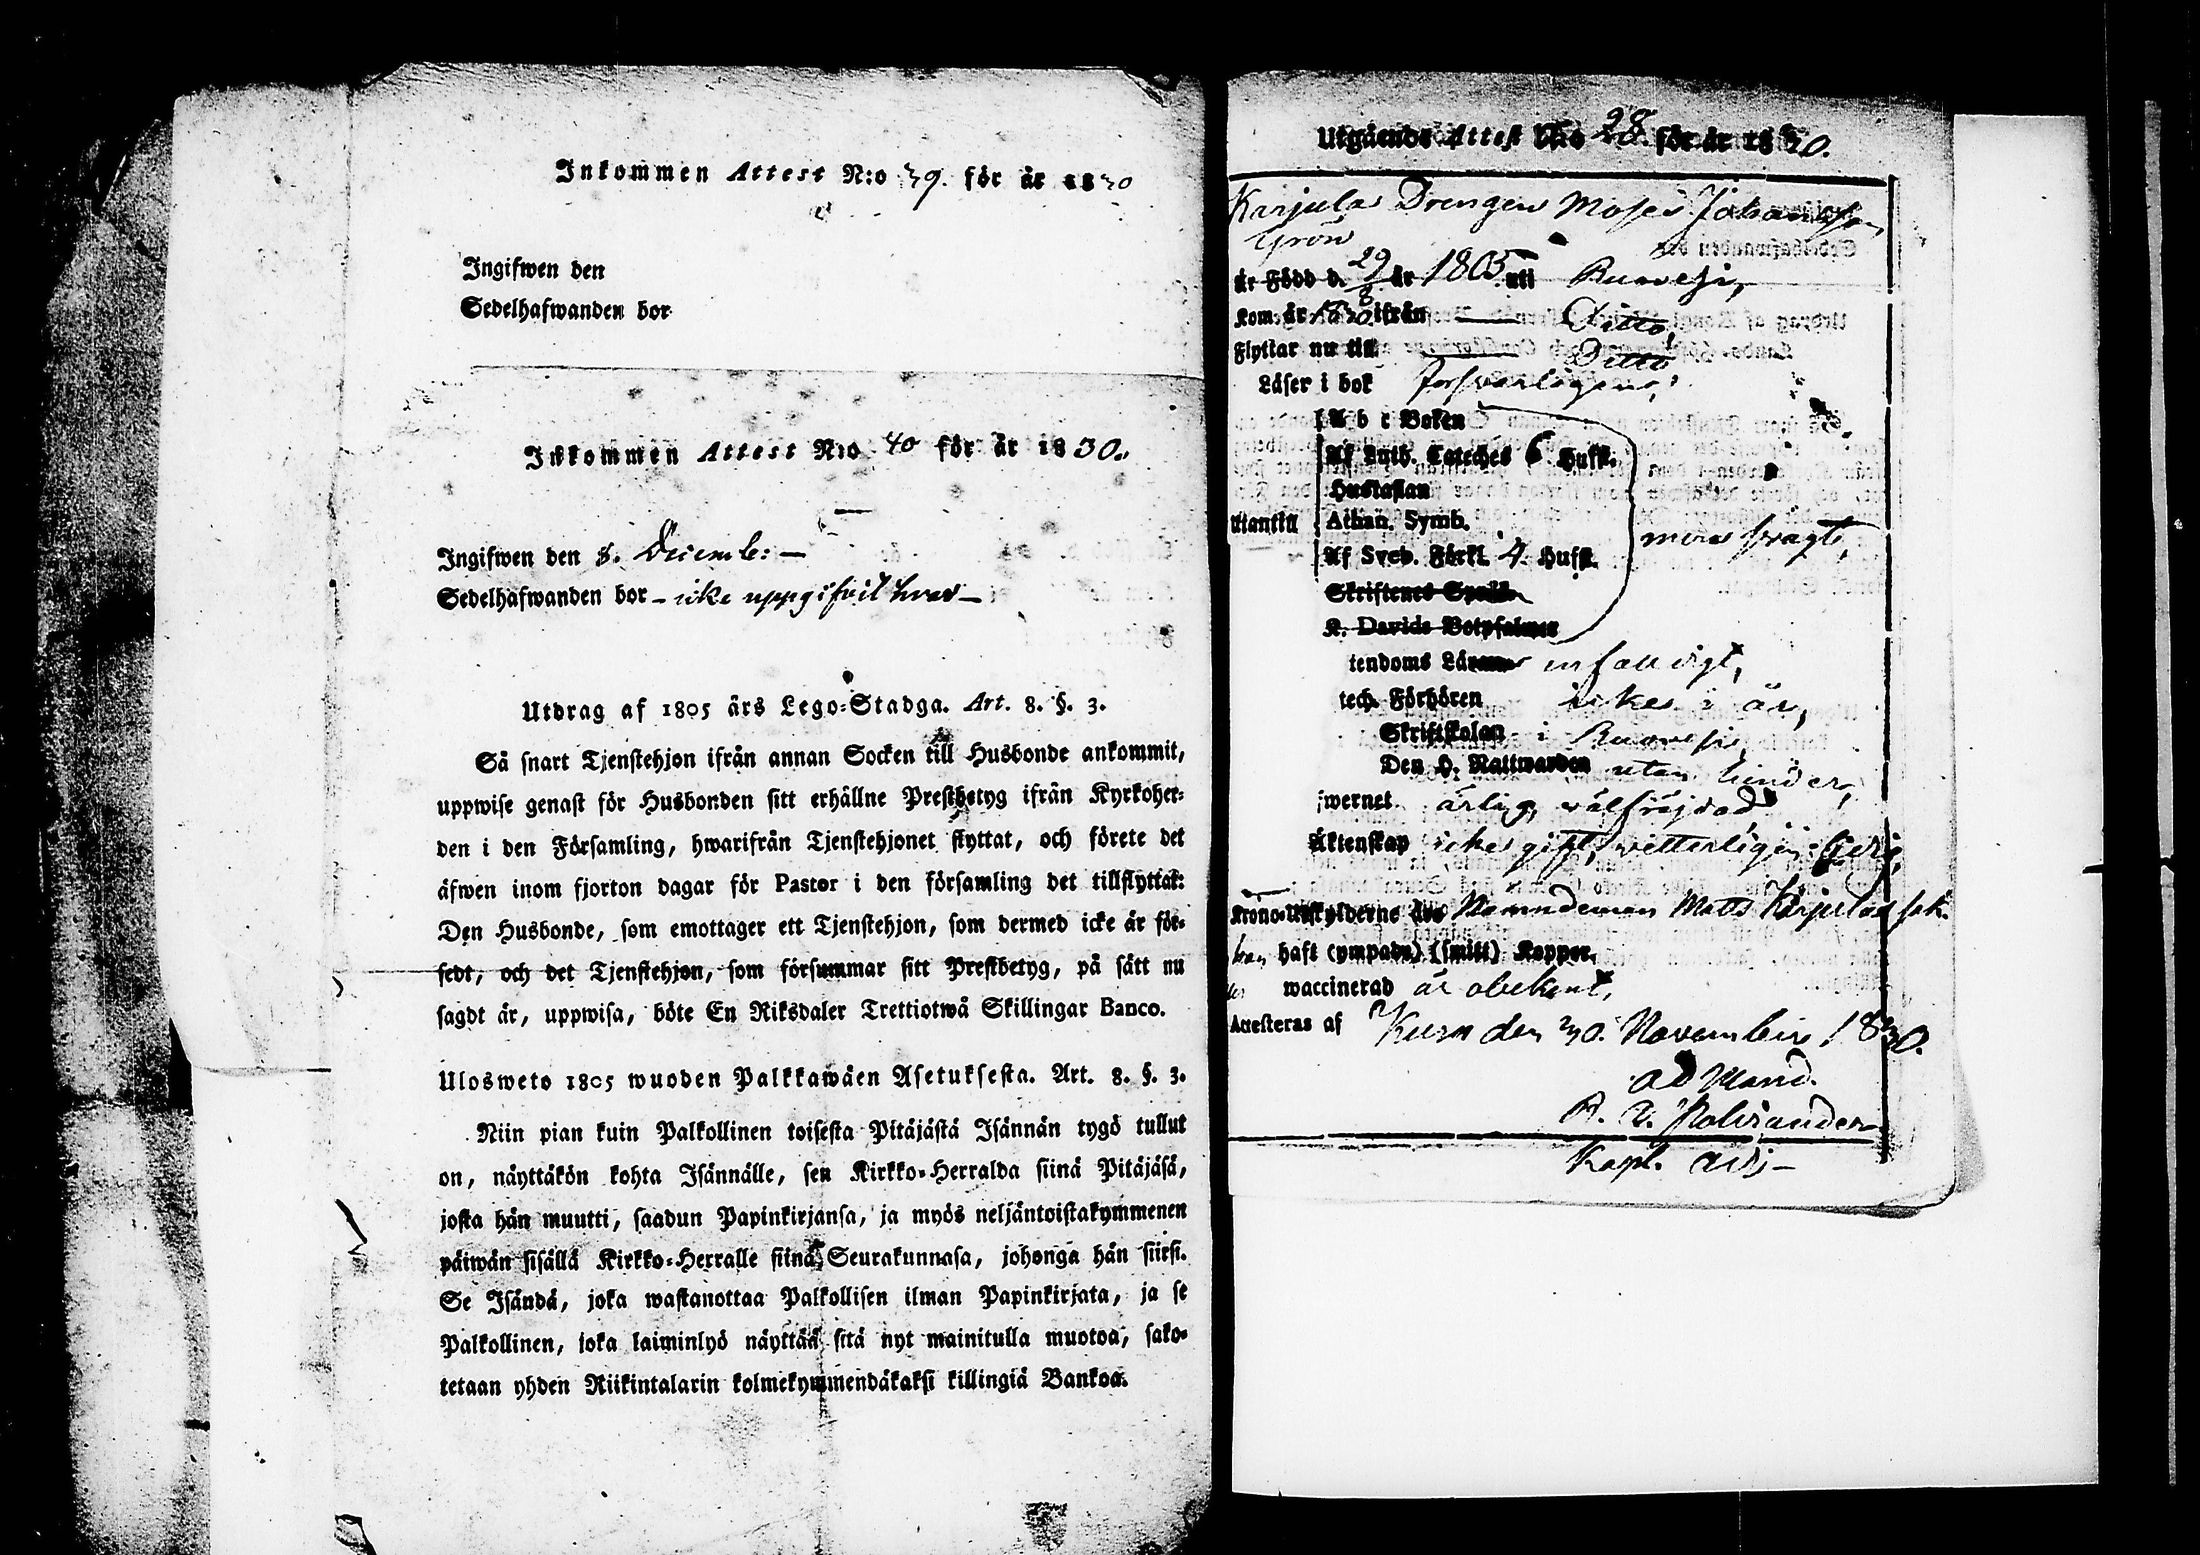 Inkommen Attest N:o 39. för år 1830
Ingifwen den
Sedelhafwanden bor
Inkommen Attest N:o 40 för år 1830.
Ingifwen den 8. Decemb: –
Sedelhafwanden bor – icke uppgifvit hvar –
Utdrag af 1805 års Lego-Stadga. Art. 8. §. 3.
Så snart Tjenstehjon ifrån annan Socken till Husbonde ankommit,
uppwise genast för Husbonden sitt erhållne Prestbetyg ifrån Kyrkoher-
den i den Församling, hwarifrån Tjenstehjonet flyttat, och förete det
äfwen inom fjorton dagar för Pastor i den församling det tillflyttat:
Den Husbonde, som emottager ett Tjenstehjon, som dermed icke är för-
sedt, och det Tjenstehjon, som försummar sitt Prestbetyg, på sätt nu
sagdt är, uppwisa, böte En Riksdaler Trettiotwå Skillingar Banco.
Ulosweto 1805 wuoden Palkkawäen Asetuksesta. Art. 8. §. 3.
Niin pian kuin Palkollinen toisesta Pitäjästä Isännän tygö tullut
on, näyttäkön kohta Isännälle, sen Kirkko-Herralda siinä Pitäjäsä,
josta hän muutti, saadun Papinkirjansa, ja myös neljäntoistakymmenen
päiwän sisällä Kirkko-Herralle siinä Seurakunnasa, johonga hän siirsi.
Se Isändä, joka wastanottaa Palkollisen ilman Papinkirjata, ja se
Palkollinen, joka laiminlyö näyttää sitä nyt mainitulla muotoa, sako-
tetaan yhden Riikintalarin kolmekymmendäkaksi killingiä Bankoa.
Utgående Attest N:o 28. för år 1830.
Karjula Drengen Moses Johansson
Grön
är Född d. 29/8 år 1803 uti Ruovesi,
Kom år 1830 ifrån — Ditto,
Flyttar nu till — Ditto
Läser i bok försvarligen,
A b c Boken
Af Luth. Cateches 6 Hufst.
Hustaflan
Utantill Athan. Symb. mera svagt,
Af Sveb. Förkl. 4. Hufst.
Skriftenes Språk
K. Davids Botpsalmer
tendoms Läran enfaldigt,
tech. Förhören icke i år,
Skriftskolan i Ruovesi,
Den H. Nattwarden utan hinder,
fwernet ärlig, välfrejdad
Äktenskap icke gift, vetterligen ledig,
Krono-Utskylderne års Nämndeman Matts Karjula
haft (ympade) (smitt) Koppor,
waccinerad är obekant,
Attesteras af Kuru den 30. November 1830.
ad Mand.
Kapl. adj –